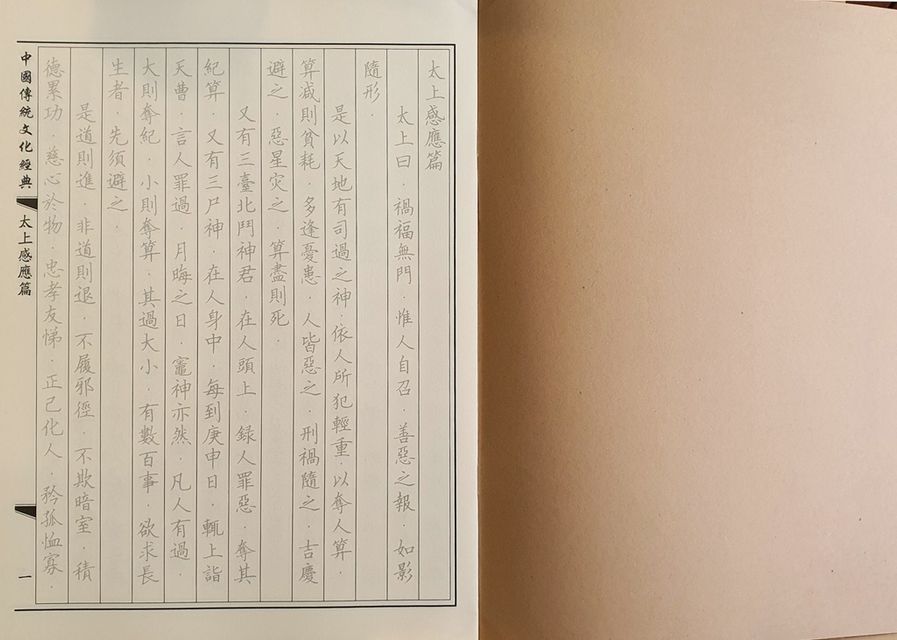 太上感應篇
太上曰．禍福無門．惟人自召．善惡之報．如影
隨形．
是以天地有司過之神．依人所犯輕重．以奪人算．
算减則貧耗．多逢憂患．人皆惡之．刑禍隨之．吉慶
避之．惡星灾之．算盡則死．
又有三臺北鬥神君．在人頭上．録人罪惡．奪其
紀算．又有三尸神．在人身中．每到庚申日．輒上詣
天曹．言人罪過．月晦之日．竈神亦然．凡人有過．
大則奪紀．小則奪算．其過大小．有數百事．欲求長
生者．先須避之．
是道則進．非道則退．不履邪徑．不欺暗室．積
德累功．慈心於物．忠孝友悌．正己化人．矜孤恤寡．
中國傳統文化經典
太上感應篇
一